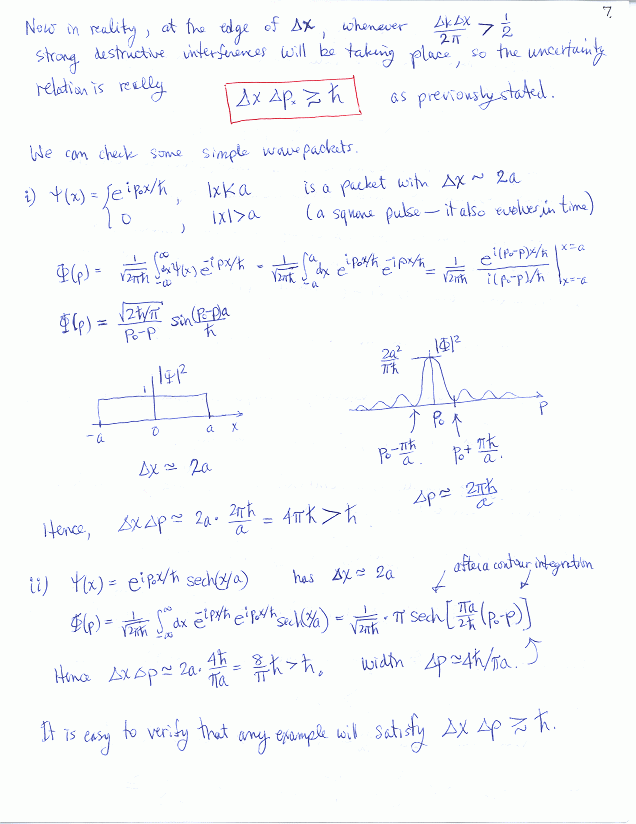 7.
Now in reality, at the edge of Δx, whenever ΔkΔx/2π > 1/2
strong destructive interferences will be taking place, so the uncertainty
relation is really Δx Δpₓ ≳ ħ as previously stated.
We can check some simple wavepackets.
i) Ψ(x) = { e^{ip₀x/ħ}, |x|<a is a packet with Δx ~ 2a
0, |x|>a (a square pulse — it also evolves in time)
Φ(p) = 1/√2πħ ∫_{-∞}^{∞} dx Ψ(x) e^{-ipx/ħ} = 1/√2πħ ∫_{-a}^{a} dx e^{ip₀x/ħ} e^{-ipx/ħ} = 1/√2πħ e^{i(p₀-p)x/ħ}/i(p₀-p)/ħ |_{x=-a}^{x=a}
Φ(p) = √2ħ/π/p₀-p sin (p₀-p)a/ħ
1 |Ψ|²
-a 0 a x
Δx ≃ 2a
2a²/πħ |Φ|²
p₀ p
p₀-πħ/a. p₀+πħ/a.
Δp ≃ 2πħ/a
Hence, ΔxΔp ≃ 2a · 2πħ/a = 4πħ > ħ
ii) Ψ(x) = e^{ip₀x/ħ} sech(x/a) has Δx ≃ 2a after a contour integration
Φ(p) = 1/√2πħ ∫_{-∞}^{∞} dx e^{-ipx/ħ} e^{ip₀x/ħ} sech(x/a) = 1/√2πħ · π sech[πa/2ħ (p₀-p)]
Hence ΔxΔp ≃ 2a · 4ħ/πa = 8/π ħ > ħ. width Δp ≃ 4ħ/πa.
It is easy to verify that any example will satisfy Δx Δp ≳ ħ.